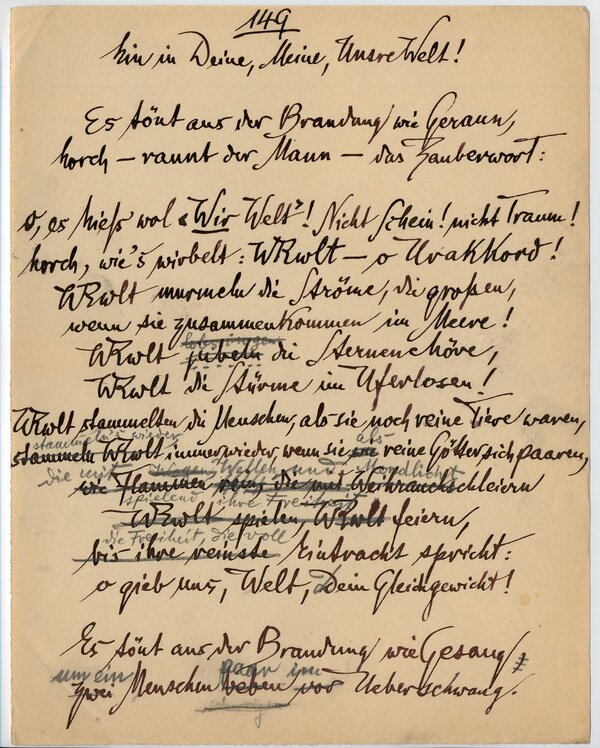 149
hin in Deine, Meine, Unsre Welt!
Es tönt aus der Brandung wie Geraun,
horch – raunt der Mann – das Zauberwort:
O, es hieß wol «Wir Welt»! Nicht Schein! nicht Traum!
horch, wie's wirbelt: WRwlt – o Urakkord!
WRwlt murmeln die Ströme, die großen,
wenn sie zusammenkommen im Meere!
lobsingen
WRwlt jubeln die Sternenchöre,
WRwlt die Stürme im Uferlosen!
WRwlt stammelten die Menschen, als sie noch reine Tiere waren,
stammeln's wieder als
stammeln WRwlt immer wieder, wenn sie wie reine Götter sich paaren,
die mit Wellen und Mondlicht
wie Flammen rein, die mit Weihrauchschleiern
spielend ihre Freiheit
WRwlt spielen, WRwlt feiern,
die Freiheit, die voll
bis ihre reinste Eintracht spricht:
o gieb uns, Welt, Dein Gleichgewicht!
Es tönt aus der Brandung wie Gesang
um ein Paar im
zwei Menschen beben vor Ueberschwang.